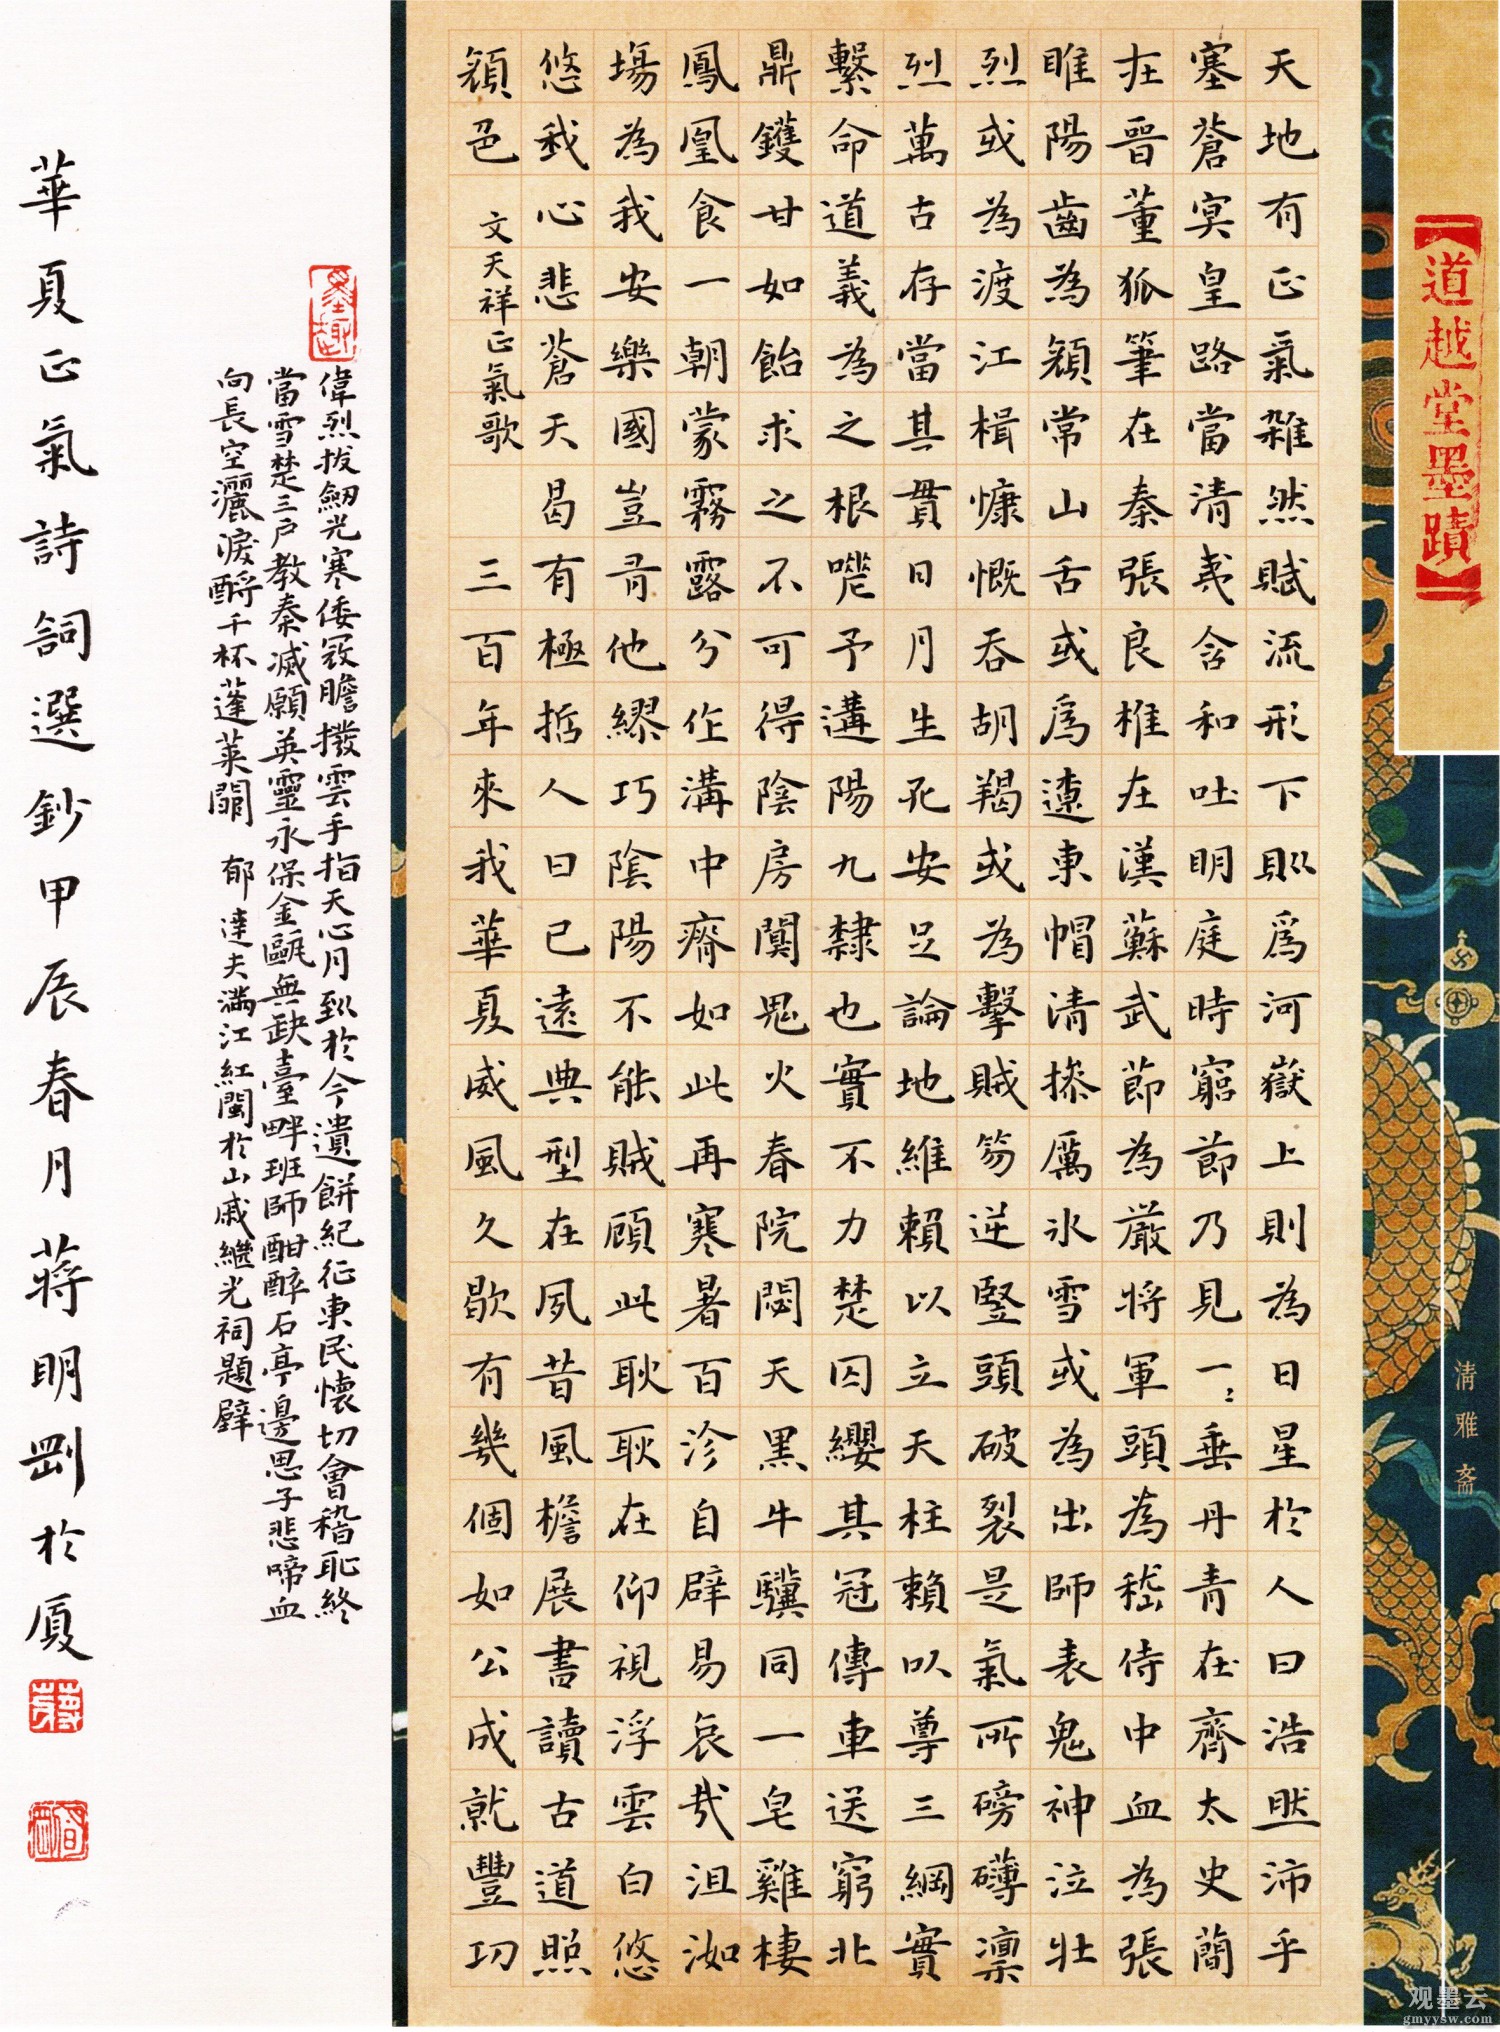 【道越堂墨蹟】
清雅斋
天地有正氣雜然賦流形下則爲河嶽上則為日星於人曰浩然沛乎
塞蒼冥皇路當清夷含和吐明庭時窮節乃見一〻垂丹青在齊太史簡
在晉董狐筆在秦張良椎在漢蘇武節為嚴將軍頭為嵇侍中血為張
睢陽齒為顏常山舌或爲遼東帽清操厲冰雪或為出師表鬼神泣壯
烈或為渡江楫慷慨吞胡羯或為擊賊笏逆豎頭破裂是氣所磅礴凜
烈萬古存當其貫日月生死安足論地維賴以立天柱賴以尊三綱實
繫命道義為之根嗟予遘陽九隸也實不力楚囚纓其冠傳車送窮北
鼎鑊甘如飴求之不可得陰房闃鬼火春院閟天黑牛驥同一皂雞棲
鳳凰食一朝蒙霧露分作溝中瘠如此再寒暑百沴自辟易哀哉沮洳
場為我安樂國豈有他繆巧陰陽不能賊顧此耿耿在仰視浮雲白悠
悠我心悲蒼天曷有極哲人日已遠典型在夙昔風檐展書讀古道照
顏色 文天祥正氣歌 三百年來我華夏威風久歇有幾個如公成就豐功
墨趣
偉烈拔劍光寒倭寇膽撥雲手指天心月到於今遺餅紀征東民懷切會稽恥終
當雪楚三户教秦滅願英靈永保金甌無缺臺畔班師酣醉石亭邊思子悲啼血
向長空灑淚酹千杯蓬萊闕 郁達夫滿江紅閩於山戚繼光祠題壁
華夏正氣詩詞選鈔甲辰春月蔣明剛於廈
观墨云
gmyysw.com